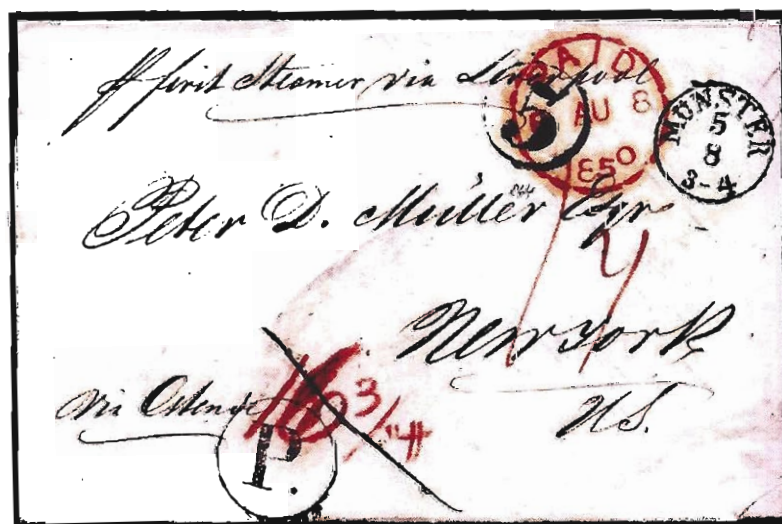 first Steamer via Liverpool
PAID
AU 8
1850
5
MÜNSTER
5
8
3-4
Peter D. Müller Esqr
New York
US.
via Ostende
3/4
P.